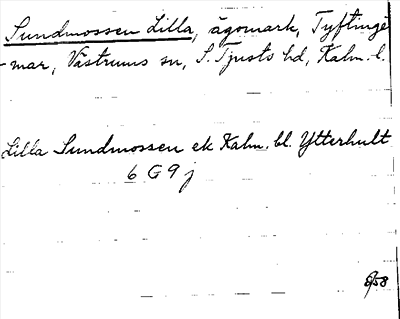 Sundmossen Lilla, ägomark, Tyftinge
-mar, Västrums sn, S. Tjusts hd, Kalm. l.
Lilla Sundmossen ek Kalm. bl. Ytterhult
6 G 9 j
8/58